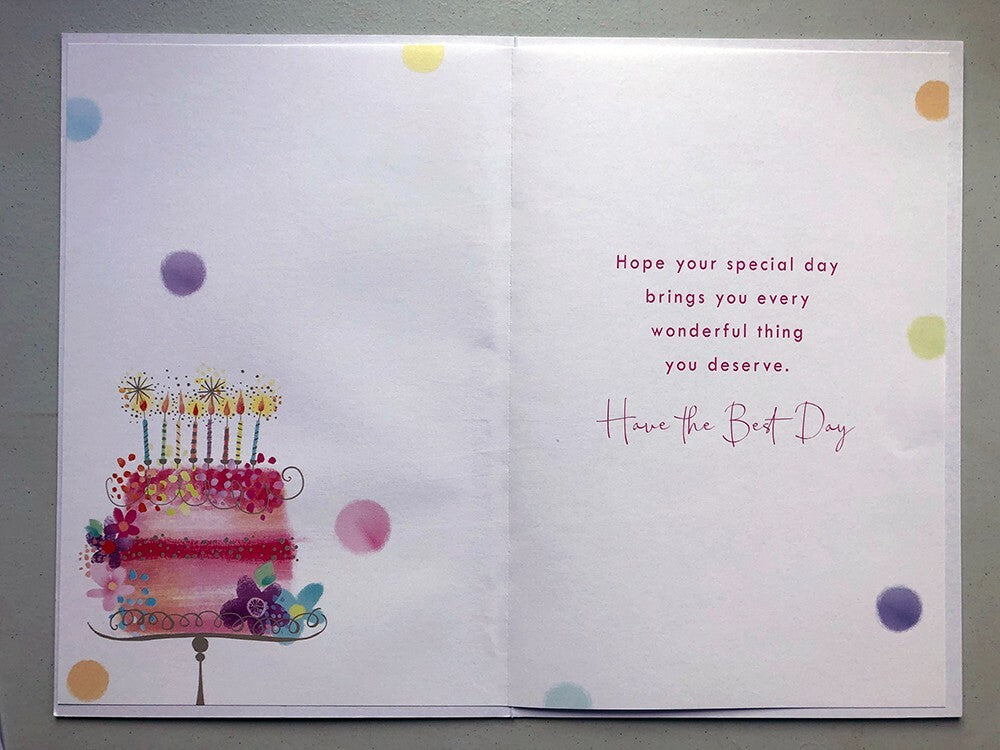 Hope your special day
brings you every
wonderful thing
you deserve.
Have the Best Day